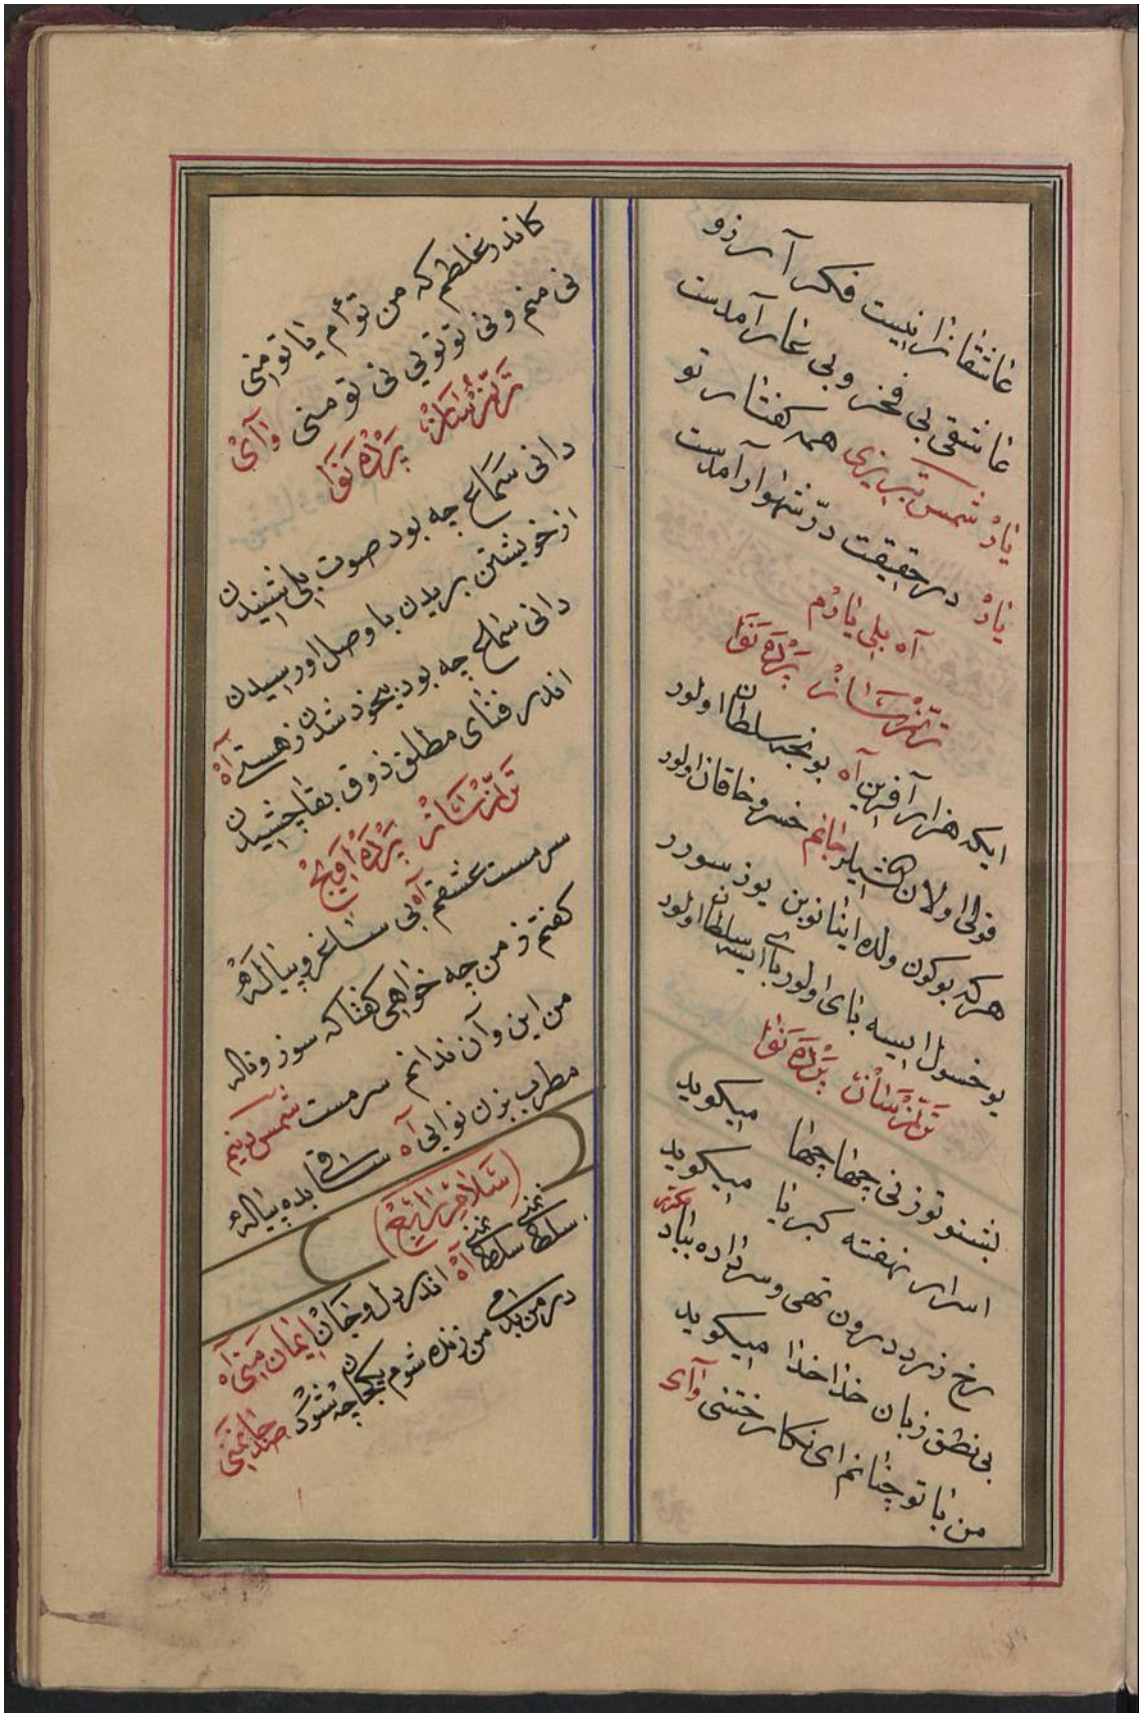 عاشقانرا نیست فکر آرزو
عاشقی بی فخر و بی عار آمدست
یار شمس تبریزی همه کفتار تو
یار در حقیقت درّ شهوار آمدست
آه بلی یارم
ترنّم ساز پرده نوا
ایکه هزار آفرین آه بو نجه سلطان اولور
قولی اولان کشیلر جانم خسرو خاقان اولور
هر که بوکون ولده اینانوبن یوز سوره
یوخسول ایسه بای اولور بای ایسه سلطان اولور
ترنّم ساز پرده نوا
بشنو تو ز نی چها چها میکوید
اسرار نهفته کبریا میکوید
رخ زرد درون تهی و سر داده بباد
بی نطق زبان خدا خدا میکوید
من با تو چنانم ای نکار ختنی وآی
کاندر غلطم که من توأم یا تو منی
نی منم و نی تو تویی نی تو منی وآی
ترنّم ساز پرده نوا
دانی سماع چه بود صوت بلی شنیدن
از خویشتن بریدن با وصل او رسیدن
دانی سماع چه بود بیخود شدن ز هستی آه
اندر فنای مطلق ذوق بقا چشیدن
ترنّم ساز پرده اویج
سرمست عشقم آه بی ساغر و پیاله
کفتم ز من چه خواهی کفتا که سوز و ناله
من این و آن ندانم سرمست شمس دینم
مطرب بزن نوایی آه ساقی بده پیاله
(سلام رابع)
سلطان منی سلطان منی آه اندر دل و جان ایمان منی آه
در من بدمی من زنده شوم یکجان چه شود صد جان منی